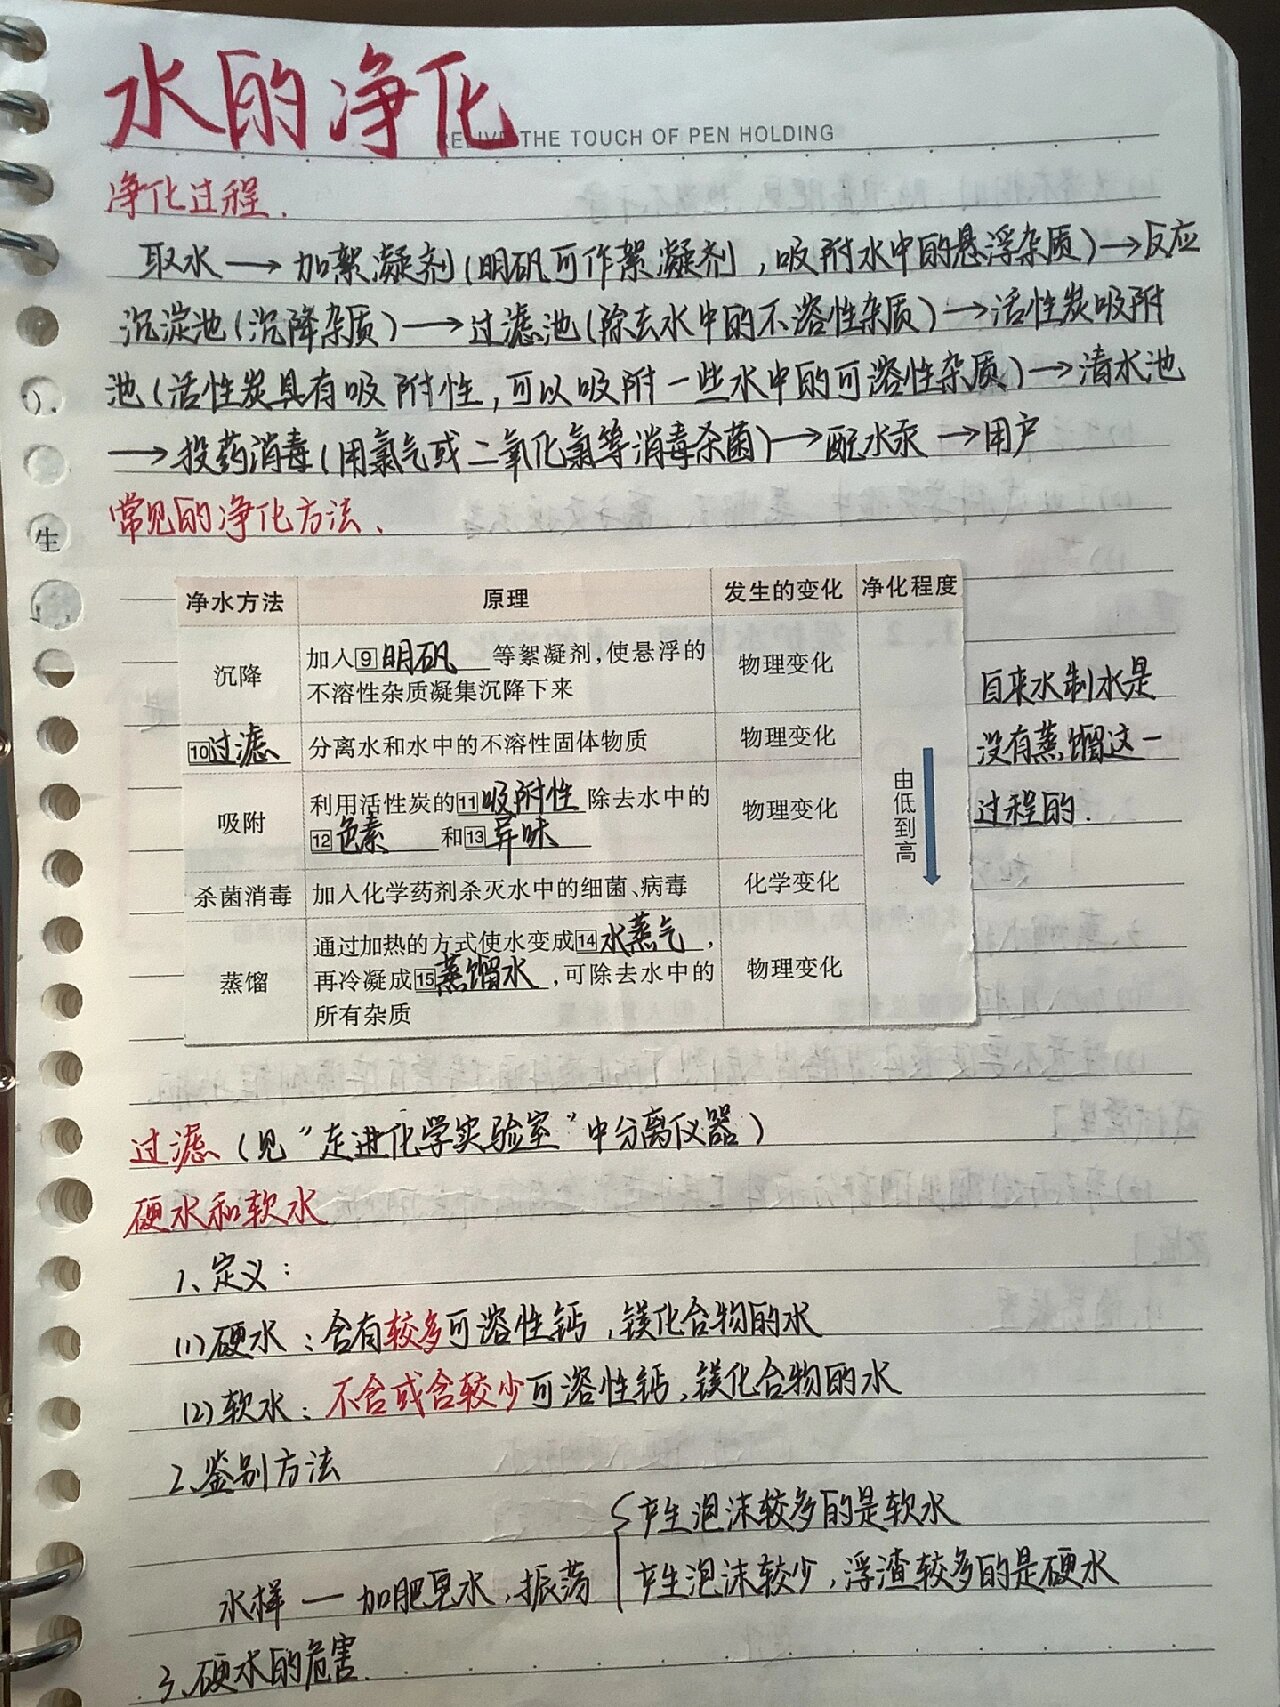 水的净化
RELIVE THE TOUCH OF PEN HOLDING
净化过程.
取水→加絮凝剂(明矾可作絮凝剂,吸附水中的悬浮杂质)→反应
沉淀池(沉降杂质)→过滤池(除去水中的不溶性杂质)→活性炭吸附
池(活性炭具有吸附性,可以吸附一些水中的可溶性杂质)→清水池
→投药消毒(用氯气或二氧化氯等消毒杀菌)→配水泵→用户
常见的净化方法.
生
净水方法 原理 发生的变化 净化程度
沉降 加入9明矾等絮凝剂,使悬浮的不溶性杂质凝集沉降下来 物理变化
10过滤 分离水和水中的不溶性固体物质 物理变化
吸附 利用活性炭的11吸附性除去水中的12色素和13异味 物理变化
杀菌消毒 加入化学药剂杀灭水中的细菌、病毒 化学变化
蒸馏 通过加热的方式使水变成14水蒸气,再冷凝成15蒸馏水,可除去水中的所有杂质 物理变化
由低到高
自来水制水是
没有蒸馏这一
过程的.
过滤(见"走进化学实验室"中分离仪器)
硬水和软水
1、定义:
(1)硬水:含有较多可溶性钙,镁化合物的水
(2)软水:不含或含较少可溶性钙,镁化合物的水
2、鉴别方法
产生泡沫较多的是软水
水样—加肥皂水,振荡
产生泡沫较少,浮渣较多的是硬水
3、硬水的危害.